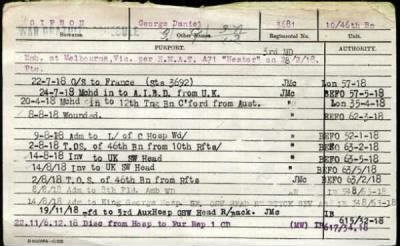 GIBSON George Daniel 3681 10/46th Bn
Surname. Other Names. Regimental No. Unit.
PURPORT. AUTHORITY.
3rd MD
Emb. at Melbourne, Vic. per H.M.A.T. A71 "Nestor" on 28/2/18.
Pte.
22-7-18 O/S to France (sts 3692) JMc Lon 57-18
24-7-18 Mchd in to A.I.B.D. from U.K. JMc BEFO 57-5-18
20-4-18 Mchd in to 12th Tng Bn C'ford from Aust. " Lon 35-4-18
8-8-18 Wounded. " BEFO 62-3-18
9-8-18 Adm to L/ of C Hosp Wd/ " BEFO 52-1-18
2-8-18 T.O.S. of 46th Bn from 10th Rfts/ " BEFO 63-2-18
14-8-18 Inv to UK SW Head " BEFO 63-5-18
14/8/18 Inv to UK GSW Head " BEFO 63/5/18
2/8/18 T.O.S. of 46th Bn from Rfts JMc BEFO 63/2/18
8/8/18 Adm to 8th Fld. Amb wn IB 348/63-18
Adm to King George Hosp.
19/11/18 Tfd to 3rd AuxHosp GSW Head R/neck. JMc IB 615/32-18
22.11/6.12.18 Disc from Hosp to Fur Rep 1 CD (MW) IB 617/34.18